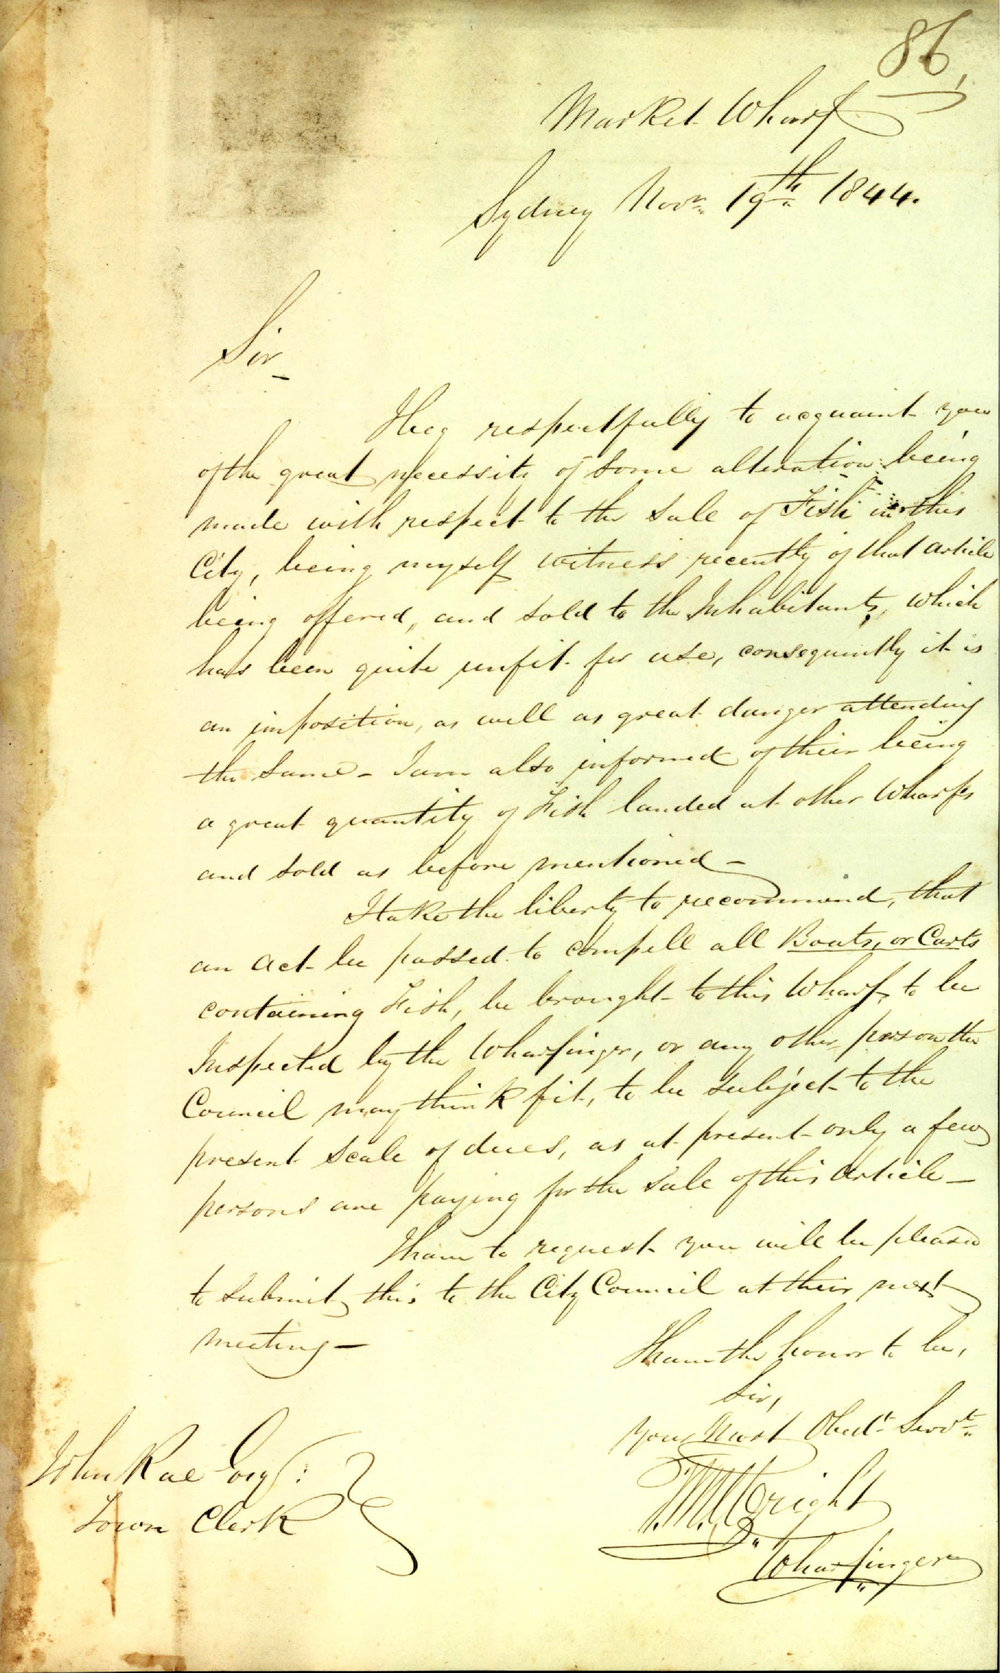 86,
Market Wharf
Sydney Novr. 19th 1844.
Sir
I beg respectfully to acquaint you
of the great necessity of some alteration being
made with respect to the Sale of Fish in this
City, being myself witness recently of that article
being offered, and sold to the Inhabitants, which
has been quite unfit for use, consequently it is
an imposition, as well as great danger attending
the same - I am also informed of their being
a great quantity of Fish landed at other Wharfs
and sold as before mentioned -
I take the liberty to recommend, that
an act be passed to compell all Boats, or Carts
containing Fish, be brought to this Wharf, to be
Inspected by the Wharfinger, or any other person the
Council may think fit, to be subject to the
present Scale of dues, as at present only a few
persons are paying for the Sale of this Article -
I have to request you will be pleased
to submit this to the City Council at their next
meeting -
I have the honor to be,
Sir,
Your Most Obedt. Servt.
Wright
Wharfinger
John Rae Esq:
Town Clerk